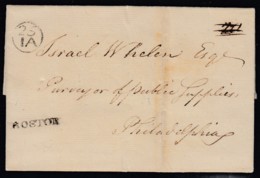 25
IA
Israel Whelen Esqr
Purveyor of Public Supplies
Philadelphia
BOSTON